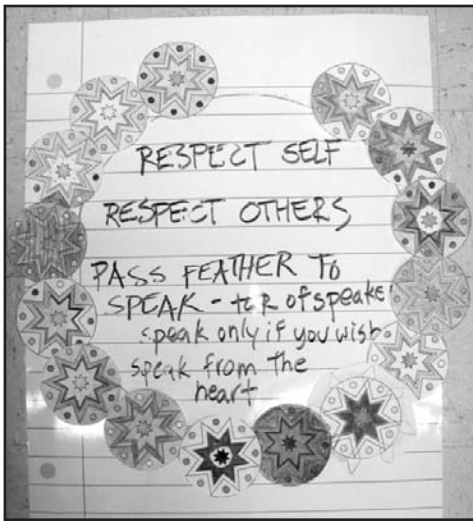 RESPECT SELF
RESPECT OTHERS
PASS FEATHER TO
SPEAK - of speake
speak only if you wish
speak from the
heart